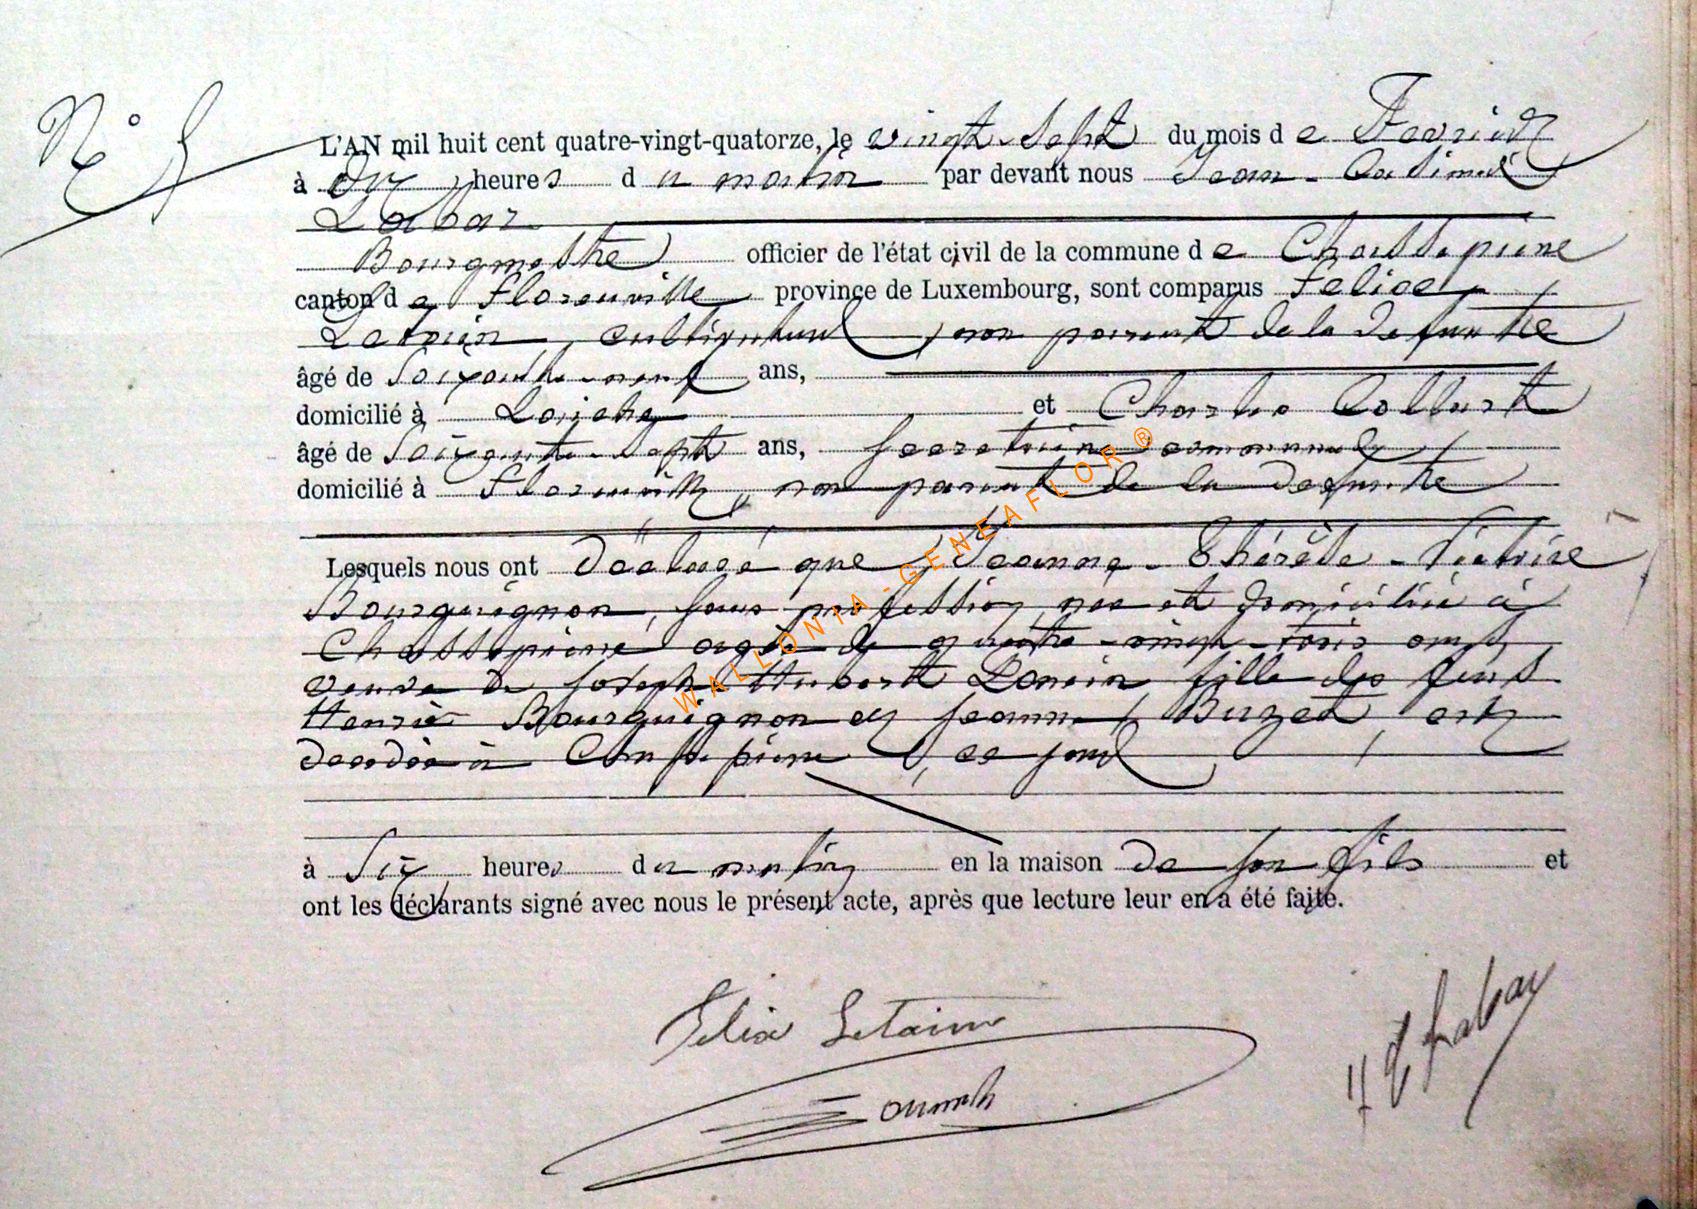 N°
L'AN mil huit cent quatre-vingt-quatorze, le vingt-sept du mois de Fevrier
à dix heures du matin par devant nous Jean-Casimir
Labar
Bourgmestre officier de l'état civil de la commune de Chassepierre
canton de Florenville province de Luxembourg, sont comparus
cultivateur, non parent de la defunte
âgé de Soixante-neuf ans,
domicilié à et Charles
âgé de Soixante-sept ans, secretaire communal
domicilié à Florenville, non parent de la defunte
Lesquels nous ont déclaré que Jeanne-Thérèse-Victoire
Bourguignon, sans profession, née et domiciliée à
Chassepierre agée de quatre-vingt-trois ans,
veuve de Joseph Hubert fille des feus
Henri Bourguignon et Jeanne Buzet, est
decedée à Chassepierre, ce jour
à six heures du matin en la maison de son fils et
ont les déclarants signé avec nous le présent acte, après que lecture leur en a été faite.
Felix Letaine
WALLONIA-GENEAFLOR ®